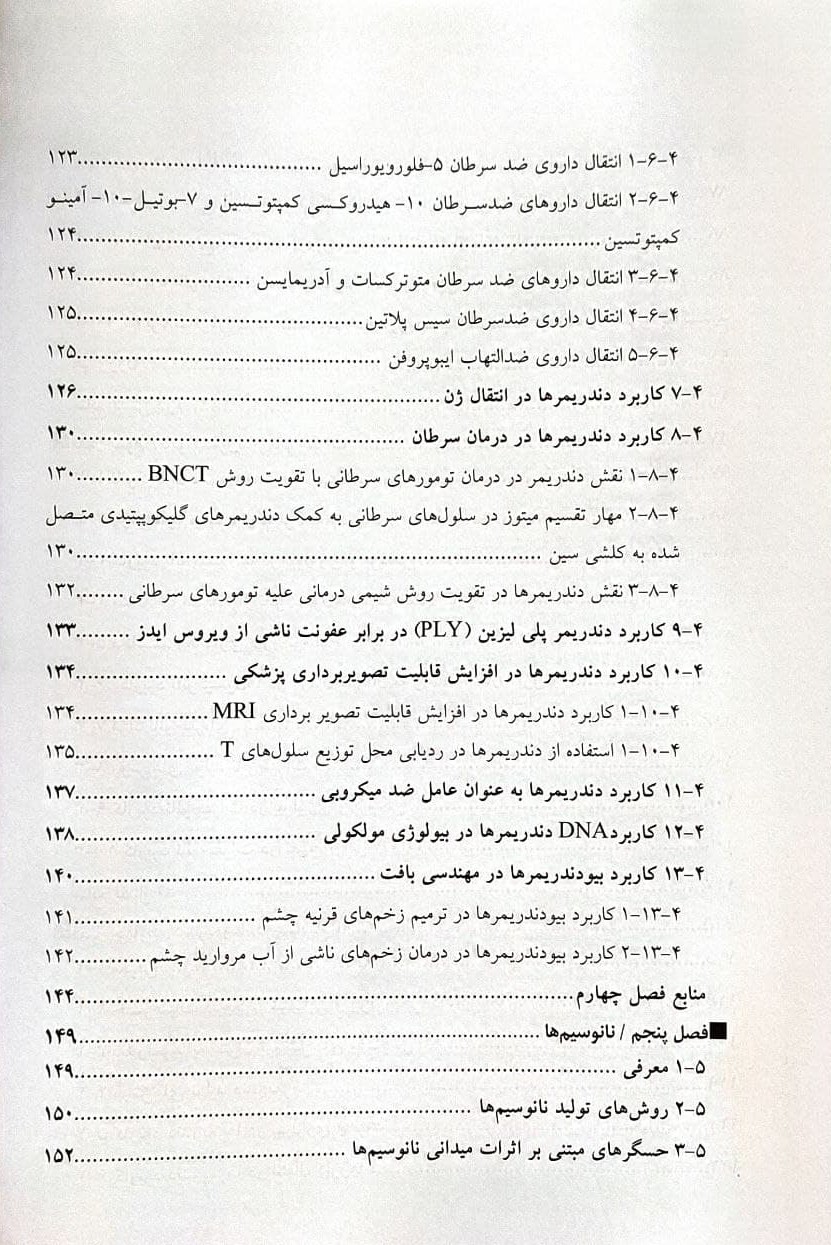 ۴-۶-۱ انتقال داروی ضد سرطان ۵-فلورویوراسیل ..........................................۱۲۳
۴-۶-۲ انتقال داروهای ضدسرطان ۱۰- هیدروکسی کمپتوتسین و ۷-بوتیل-۱۰- آمینو
کمپتوتسین..........................................................................................۱۲۴
۴-۶-۳ انتقال داروهای ضد سرطان متوترکسات و آدریمایسن ..............................۱۲۴
۴-۶-۴ انتقال داروی ضدسرطان سیس پلاتین.................................................۱۲۵
۴-۶-۵ انتقال داروی ضدالتهاب ایبوپروفن ....................................................۱۲۵
۴-۷ کاربرد دندریمرها در انتقال ژن..............................................................۱۲۶
۴-۸ کاربرد دندریمرها در درمان سرطان ........................................................۱۳۰
۴-۸-۱ نقش دندریمر در درمان تومورهای سرطانی با تقویت روش BNCT ...........۱۳۰
۴-۸-۲ مهار تقسیم میتوز در سلول‌های سرطانی به کمک دندریمرهای گلیکوپپتیدی متصل
شده به کلشی سین ................................................................................۱۳۰
۴-۸-۳ نقش دندریمرها در تقویت روش شیمی درمانی علیه تومورهای سرطانی ........۱۳۲
۴-۹ کاربرد دندریمر پلی لیزین (PLY) در برابر عفونت ناشی از ویروس ایدز .........۱۳۳
۴-۱۰ کاربرد دندریمرها در افزایش قابلیت تصویربرداری پزشکی ..........................۱۳۴
۴-۱۰-۱ کاربرد دندریمرها در افزایش قابلیت تصویر برداری MRI .......................۱۳۴
۴-۱۰-۱ استفاده از دندریمرها در ردیابی محل توزیع سلول‌های T ........................۱۳۵
۴-۱۱ کاربرد دندریمرها به عنوان عامل ضد میکروبی.........................................۱۳۷
۴-۱۲ کاربردDNA دندریمرها در بیولوژی مولکولی .........................................۱۳۸
۴-۱۳ کاربرد بیودندریمرها در مهندسی بافت ...................................................۱۴۰
۴-۱۳-۱ کاربرد بیودندریمرها در ترمیم زخم‌های قرنیه چشم ...............................۱۴۱
۴-۱۳-۲ کاربرد بیودندریمرها در درمان زخم‌های ناشی از آب مروارید چشم............۱۴۲
منابع فصل چهارم.....................................................................................۱۴۴
■فصل پنجم / نانوسیم‌ها...............................................................................۱۴۹
۵-۱ معرفی ..............................................................................................۱۴۹
۵-۲ روش‌های تولید نانوسیم‌ها ....................................................................۱۵۰
۵-۳ حسگرهای مبتنی بر اثرات میدانی نانوسیم‌ها ..............................................۱۵۲